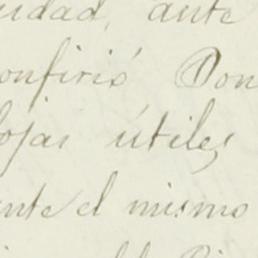 uidad, ante
onfirió Don
ojas útiles
ente el mismo